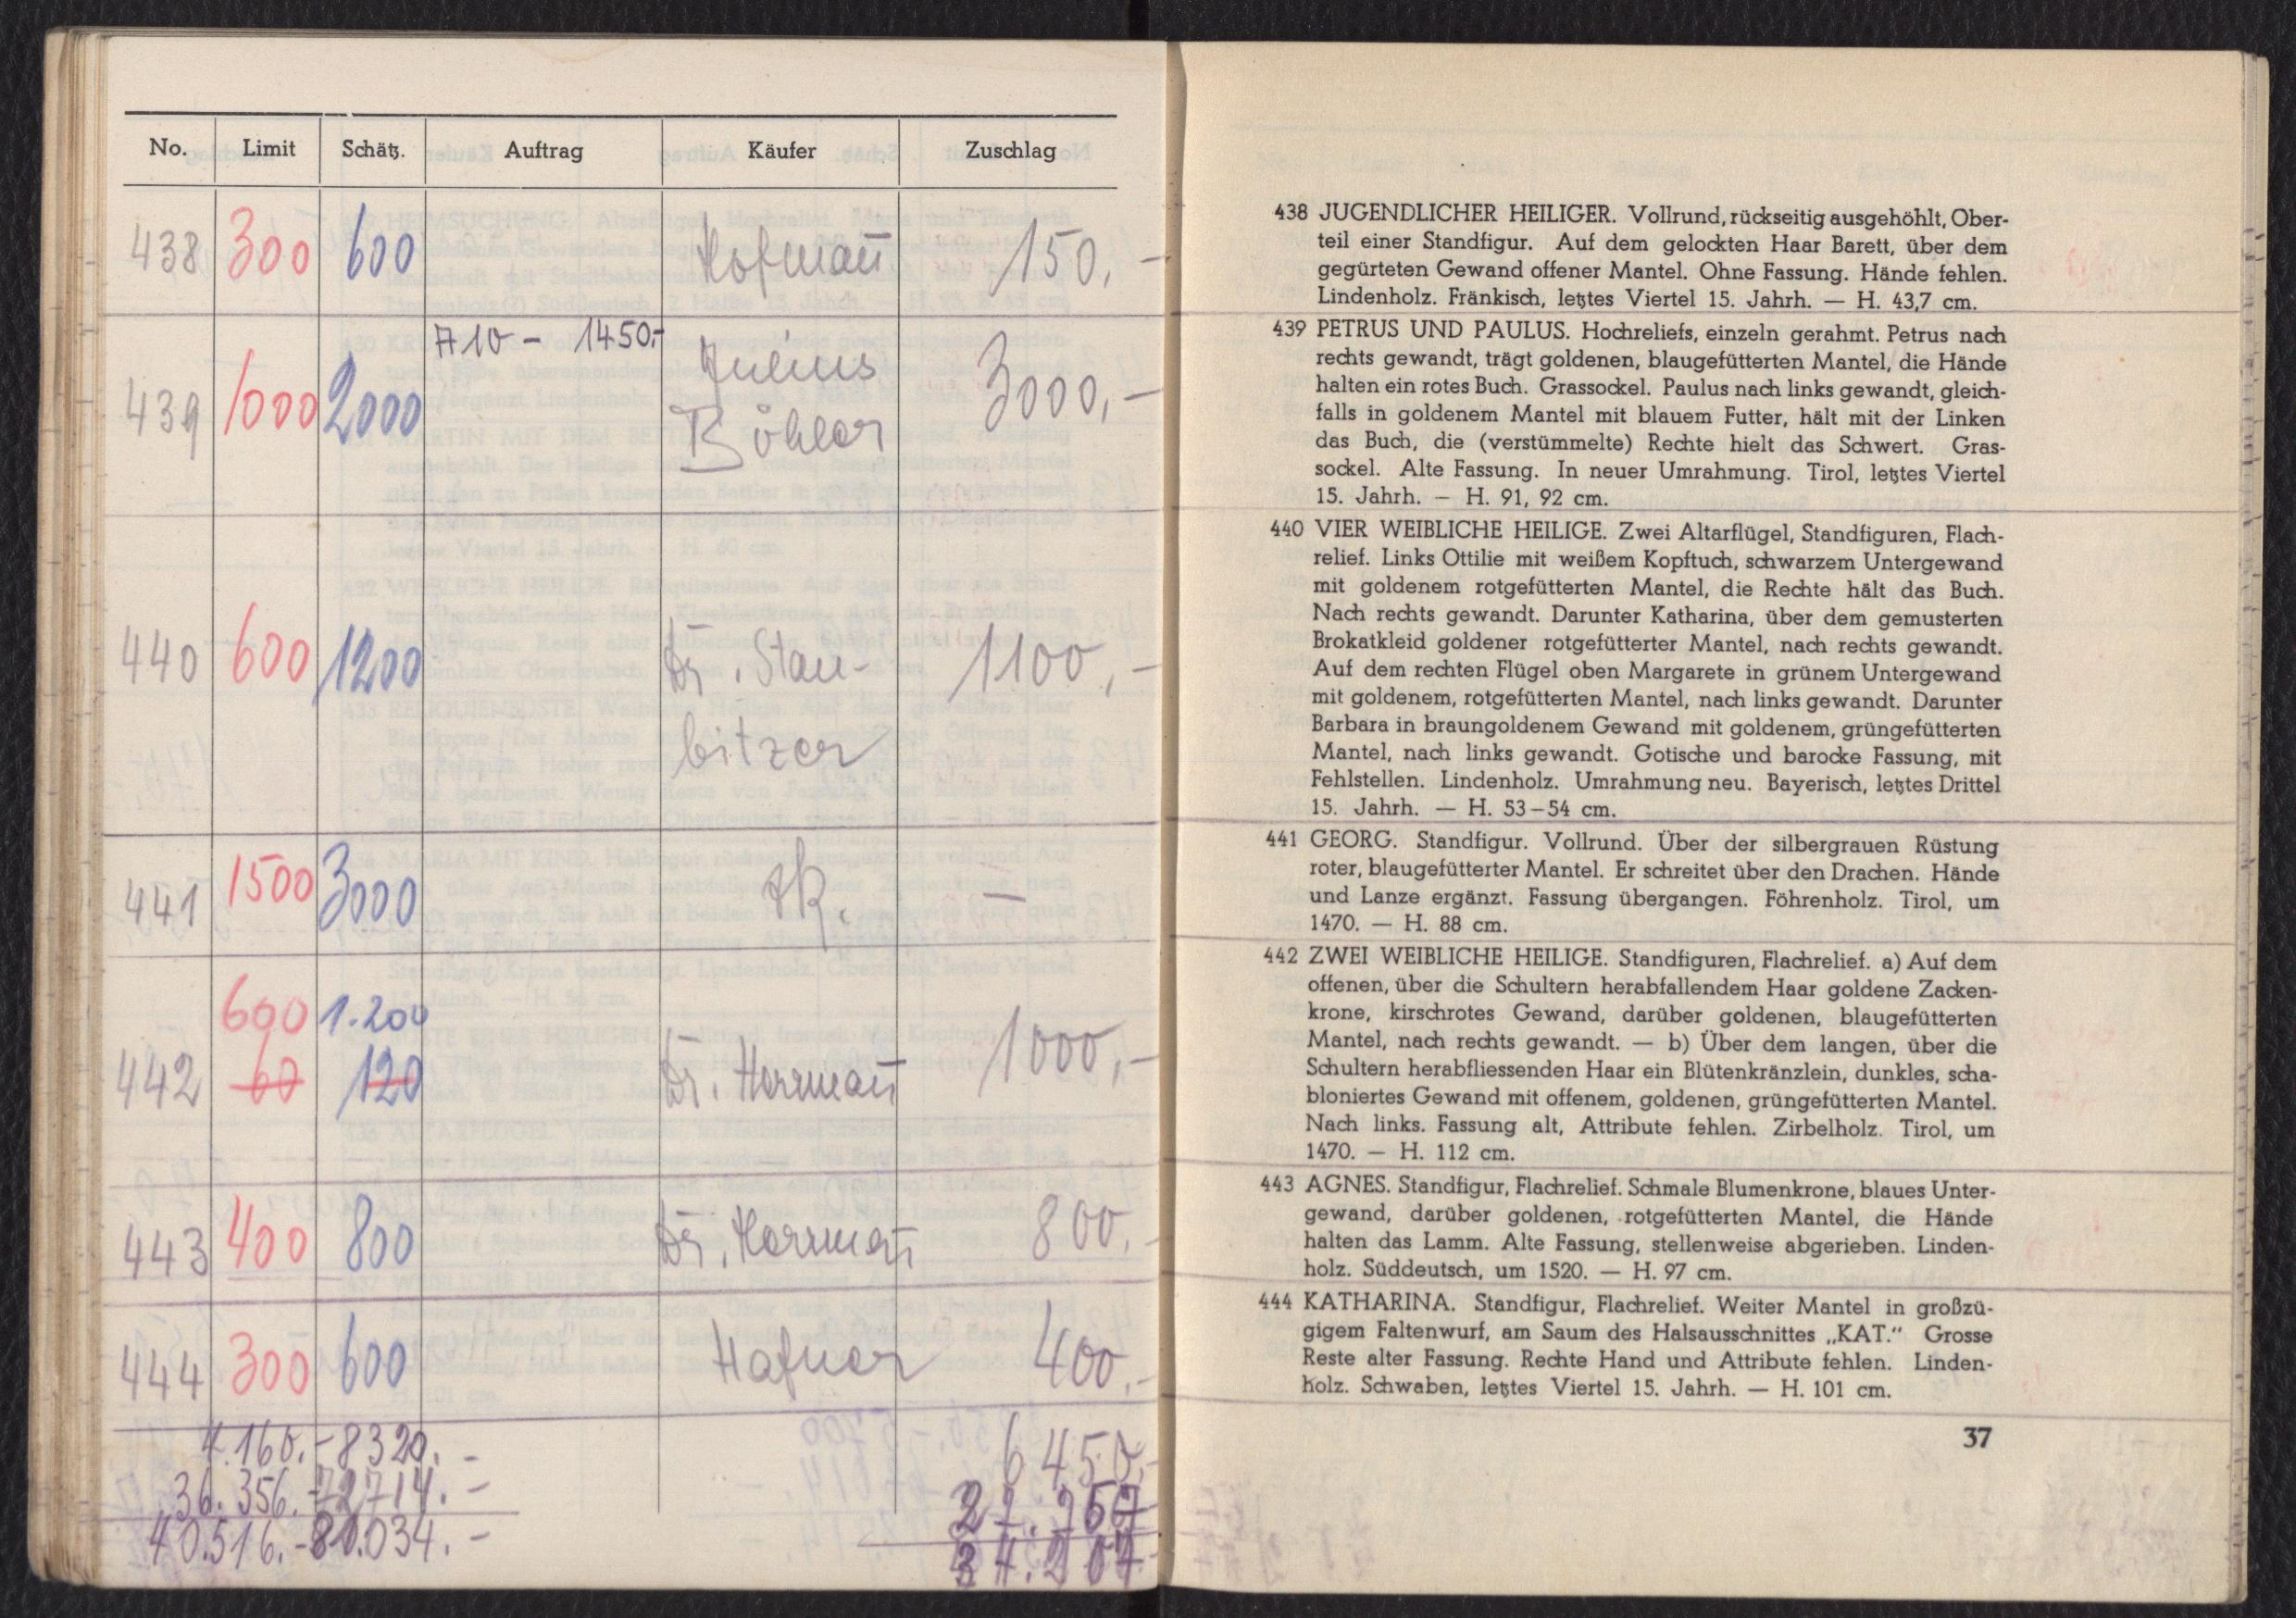 No. Limit Schätz. Auftrag Käufer Zuschlag
438 300 600 Hofmañ 150,-
439 1000 2000 710 - 1450.- Julius Böhler 3000,-
440 600 1200 Dr. Stau-
bitzer 1100,-
441 1500 3000 ZR. -
600 1.200
442 60 120 Dr. Herrmañ 1000,-
443 400 800 Dr. Herrmañ 800.-
444 300 600 Hafner 400.-
4.160.- 8320.- 6450.-
36.356.- 72714.-
40.516.- 034.-
438 JUGENDLICHER HEILIGER. Vollrund, rückseitig ausgehöhlt, Ober-
teil einer Standfigur. Auf dem gelockten Haar Barett, über dem
gegürteten Gewand offener Mantel. Ohne Fassung. Hände fehlen.
Lindenholz. Fränkisch, letztes Viertel 15. Jahrh. — H. 43,7 cm.
439 PETRUS UND PAULUS. Hochreliefs, einzeln gerahmt. Petrus nach
rechts gewandt, trägt goldenen, blaugefütterten Mantel, die Hände
halten ein rotes Buch. Grassockel. Paulus nach links gewandt, gleich-
falls in goldenem Mantel mit blauem Futter, hält mit der Linken
das Buch, die (verstümmelte) Rechte hielt das Schwert. Gras-
sockel. Alte Fassung. In neuer Umrahmung. Tirol, letztes Viertel
15. Jahrh. — H. 91, 92 cm.
440 VIER WEIBLICHE HEILIGE. Zwei Altarflügel, Standfiguren, Flach-
relief. Links Ottilie mit weißem Kopftuch, schwarzem Untergewand
mit goldenem rotgefütterten Mantel, die Rechte hält das Buch.
Nach rechts gewandt. Darunter Katharina, über dem gemusterten
Brokatkleid goldener rotgefütterter Mantel, nach rechts gewandt.
Auf dem rechten Flügel oben Margarete in grünem Untergewand
mit goldenem, rotgefütterten Mantel, nach links gewandt. Darunter
Barbara in braungoldenem Gewand mit goldenem, grüngefütterten
Mantel, nach links gewandt. Gotische und barocke Fassung, mit
Fehlstellen. Lindenholz. Umrahmung neu. Bayerisch, letztes Drittel
15. Jahrh. — H. 53–54 cm.
441 GEORG. Standfigur. Vollrund. Über der silbergrauen Rüstung
roter, blaugefütterter Mantel. Er schreitet über den Drachen. Hände
und Lanze ergänzt. Fassung übergangen. Föhrenholz. Tirol, um
1470. — H. 88 cm.
442 ZWEI WEIBLICHE HEILIGE. Standfiguren, Flachrelief. a) Auf dem
offenen, über die Schultern herabfallendem Haar goldene Zacken-
krone, kirschrotes Gewand, darüber goldenen, blaugefütterten
Mantel, nach rechts gewandt. — b) Über dem langen, über die
Schultern herabfliessenden Haar ein Blütenkränzlein, dunkles, scha-
bloniertes Gewand mit offenem, goldenen, grüngefütterten Mantel.
Nach links. Fassung alt, Attribute fehlen. Zirbelholz. Tirol, um
1470. — H. 112 cm.
443 AGNES. Standfigur, Flachrelief. Schmale Blumenkrone, blaues Unter-
gewand, darüber goldenen, rotgefütterten Mantel, die Hände
halten das Lamm. Alte Fassung, stellenweise abgerieben. Linden-
holz. Süddeutsch, um 1520. — H. 97 cm.
444 KATHARINA. Standfigur, Flachrelief. Weiter Mantel in großzü-
gigem Faltenwurf, am Saum des Halsausschnittes „KAT.“ Grosse
Reste alter Fassung. Rechte Hand und Attribute fehlen. Linden-
holz. Schwaben, letztes Viertel 15. Jahrh. — H. 101 cm.
37